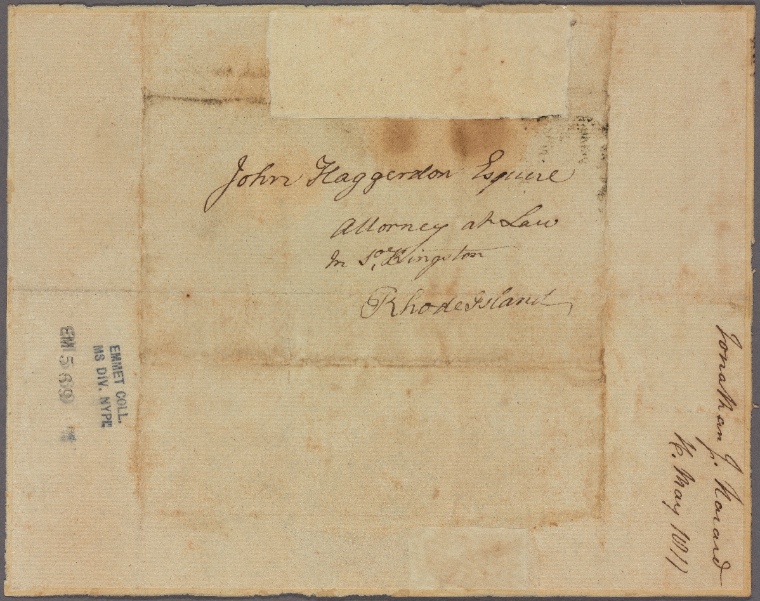 John Haggerdon Esquire
Attorney at Law
In So. Kingston
Rhode Island
EMMET COLL.
MS DIV. NYPL
EM
Jonathan J.
May 1811